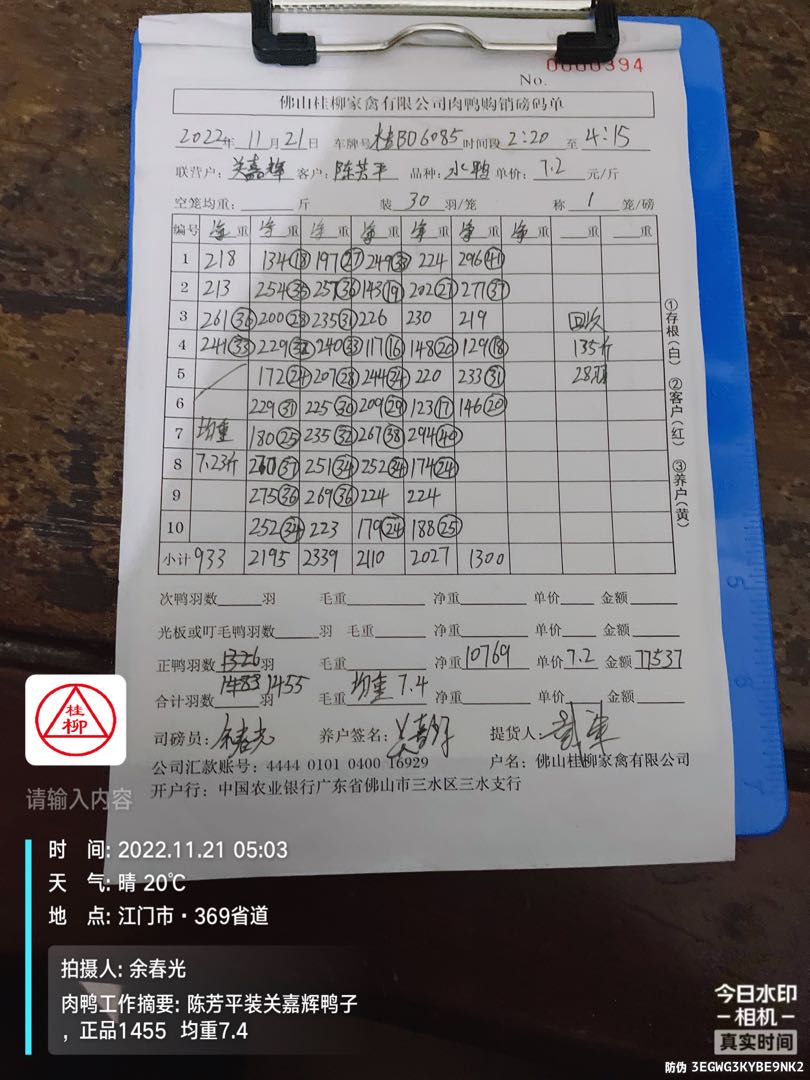 No. 0000394
佛山桂柳家禽有限公司肉鸭购销磅码单
2022年 11月21日 车牌号桂BD6085时间段 2:20 至 4:15
联营户: 关嘉辉 客户: 陈芳平 品种: 水鸭 单价: 7.2 元/斤
空笼均重: 斤 装 30 羽/笼 称 1 笼/磅
编号 净重 净重 净重 净重 净重 净重 净重 重 重
1 218 134⑱ 197㉗ 249 224 296㊶
2 213 254㉟ 257㊱ 143⑲ 202㉗ 277㊲
3 261㊱ 200㉘ 235㉛ 226 230 219 回收
4 241㉝ 229㉜ 240㉝ 117⑯ 148⑳ 129⑱ 135斤
5 172㉔ 207㉘ 244㉞ 220 233㉛ 28羽
6 229㉛ 225㉚ 209㉙ 123⑰ 146⑳
7 均重 180㉕ 235㉜ 267㊳ 294㊵
8 7.23斤 260㊲ 251㉞ 252㉞ 174㉔
9 275㊱ 269㊱ 224 224
10 252㉞ 223 179㉔ 188㉕
小计 933 2195 2339 2110 2027 1300
①存根(白) ②客户(红) ③养户(黄)
次鸭羽数 羽 毛重 净重 单价 金额
光板或叮毛鸭羽数 羽 毛重 净重 单价 金额
正鸭羽数 1326 羽 毛重 净重 10769 单价 7.2 金额 77537
合计羽数 1455 羽 毛重 均重 7.4 净重 单价 金额
司磅员: 余春光 养户签名: 提货人:
公司汇款账号: 4444 0101 0400 16929 户名: 佛山桂柳家禽有限公司
开户行: 中国农业银行广东省佛山市三水区三水支行
桂柳
请输入内容
时 间: 2022.11.21 05:03
天 气: 晴 20℃
地 点: 江门市·369省道
拍摄人: 余春光
肉鸭工作摘要: 陈芳平装关嘉辉鸭子
,正品1455 均重7.4
今日水印
-相机-
真实时间
防伪 3EGWG3KYBE9NK2